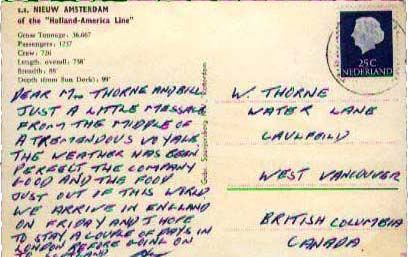 s.s. NIEUW AMSTERDAM
of the "Holland-America Line"
Gross Tonnage: 36,667
Passengers: 1237
Crew: 726
Length, overall: 758'
Breadth: 88'
Depth (from Sun Deck): 99'
DEAR Mr THORNE AND BILL
JUST A LITTLE MESSAGE
FROM THE MIDDLE OF
A TREMENDOUS VOYAGE
THE WEATHER HAS BEEN
PERFECT THE COMPANY
GOOD AND THE FOOD
JUST OUT OF THIS WORLD
WE ARRIVE IN ENGLAND
ON FRIDAY AND I HOPE
TO STAY A COUPLE OF DAYS IN
LONDON BEFORE GOING ON
TO
Gebr. Spanjersberg N.V., Rotterdam
25 C
NEDERLAND
W. THORNE
WATER LANE
CAULFEILD
WEST VANCOUVER
BRITISH COLUMBIA
CANADA